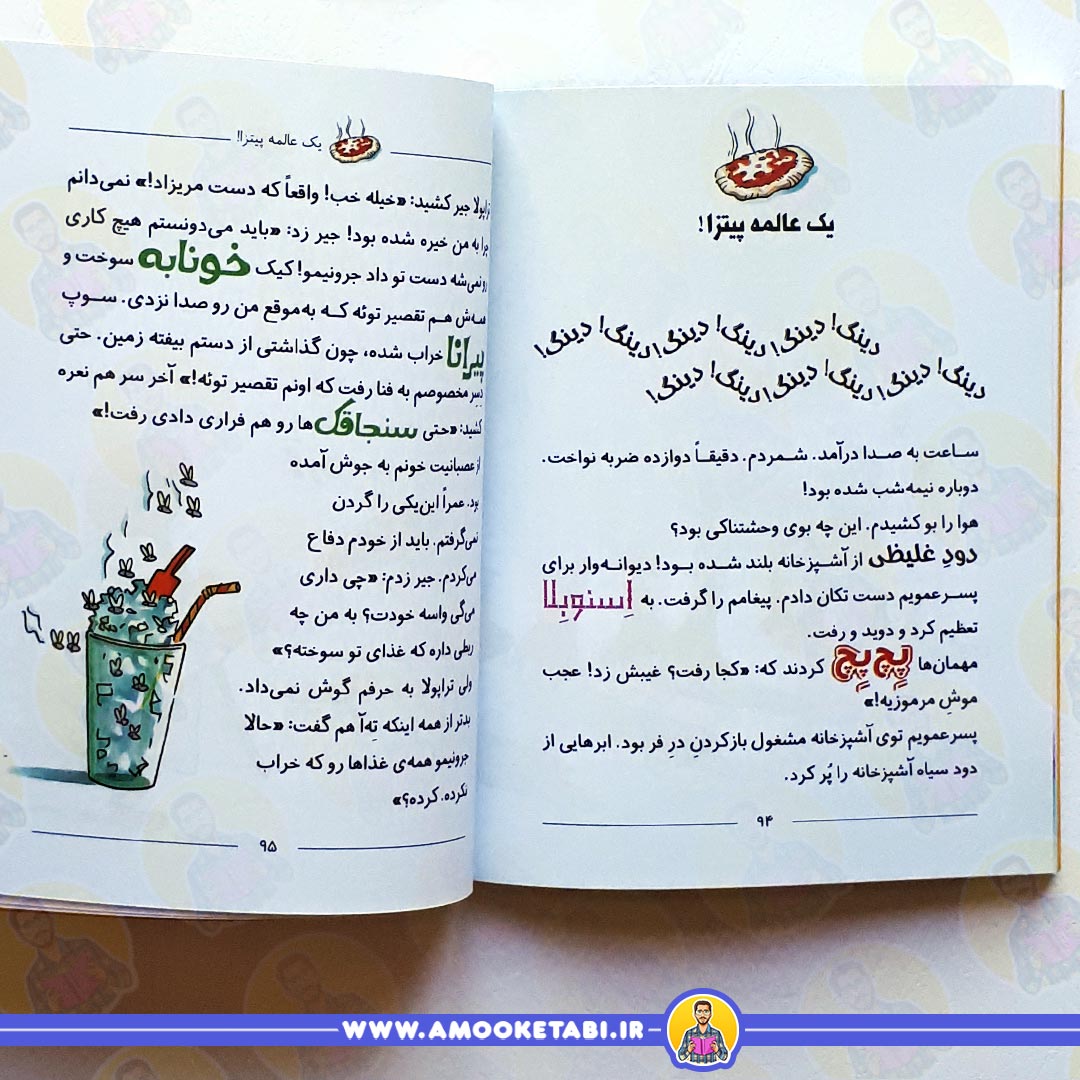 یک عالمه پیتزا!
دینگ! دینگ! دینگ! دینگ! دینگ! دینگ! دینگ!
دینگ! دینگ! دینگ! دینگ! دینگ! دینگ!
ساعت به صدا درآمد. شمردم. دقیقاً دوازده ضربه نواخت.
دوباره نیمه‌شب شده بود!
هوا را بو کشیدم. این چه بوی وحشتناکی بود؟
دودِ غلیظی از آشپزخانه بلند شده بود! دیوانه‌وار برای
پسرعمویم دست تکان دادم. پیغامم را گرفت. به اِسنوبِلا
تعظیم کرد و دوید و رفت.
مهمان‌ها پِچ پِچ کردند که: «کجا رفت؟ غیبش زد! عجب
موشِ مرموزیه!»
پسرعمویم توی آشپزخانه مشغول بازکردنِ درِ فر بود. ابرهایی از
دود سیاه آشپزخانه را پُر کرد.
۹۴
یک عالمه پیتزا!
تراپولا جیر کشید: «خیله خب! واقعاً که دست مریزاد!» نمی‌دانم
چرا به من خیره شده بود! جیر زد: «باید می‌دونستم هیچ کاری
رو نمی‌شه دست تو داد جرونیمو! کیک خونابه سوخت و
همه‌ش هم تقصیر توئه که به‌موقع من رو صدا نزدی. سوپ
پیرانا خراب شده، چون گذاشتی از دستم بیفته زمین. حتی
دِسِر مخصوصم به فنا رفت که اونم تقصیر توئه!» آخر سر هم نعره
کشید: «حتی سنجاقک‌ها رو هم فراری دادی رفت!»
از عصبانیت خونم به جوش آمده
بود. عمراً این‌یکی را گردن
نمی‌گرفتم. باید از خودم دفاع
می‌کردم. جیر زدم: «چی داری
می‌گی واسه خودت؟ به من چه
ربطی داره که غذای تو سوخته؟»
ولی تراپولا به حرفم گوش نمی‌داد.
بدتر از همه اینکه تِه‌آ هم گفت: «حالا
جرونیمو همه‌ی غذاها رو که خراب
نکرده. کرده؟»
۹۵
WWW.AMOOKETABI.IR